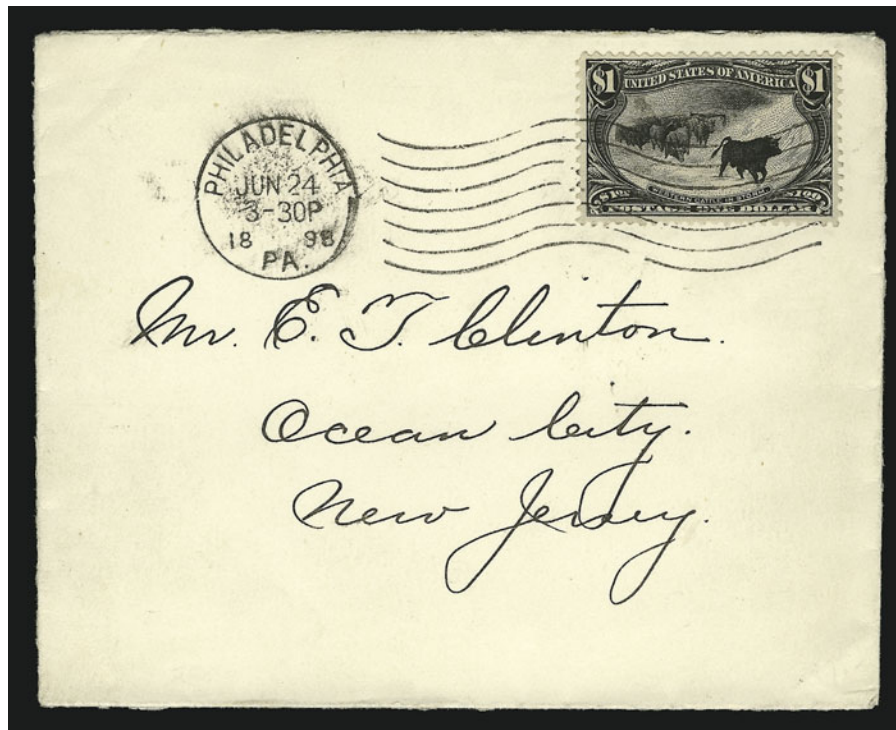 $1 UNITED STATES OF AMERICA $1
WESTERN CATTLE IN STORM
POSTAGE ONE DOLLAR
PHILADELPHIA
JUN 24
3-30P
18 98
PA.
Mr. E. T. Clinton.
Ocean City.
New Jersey.